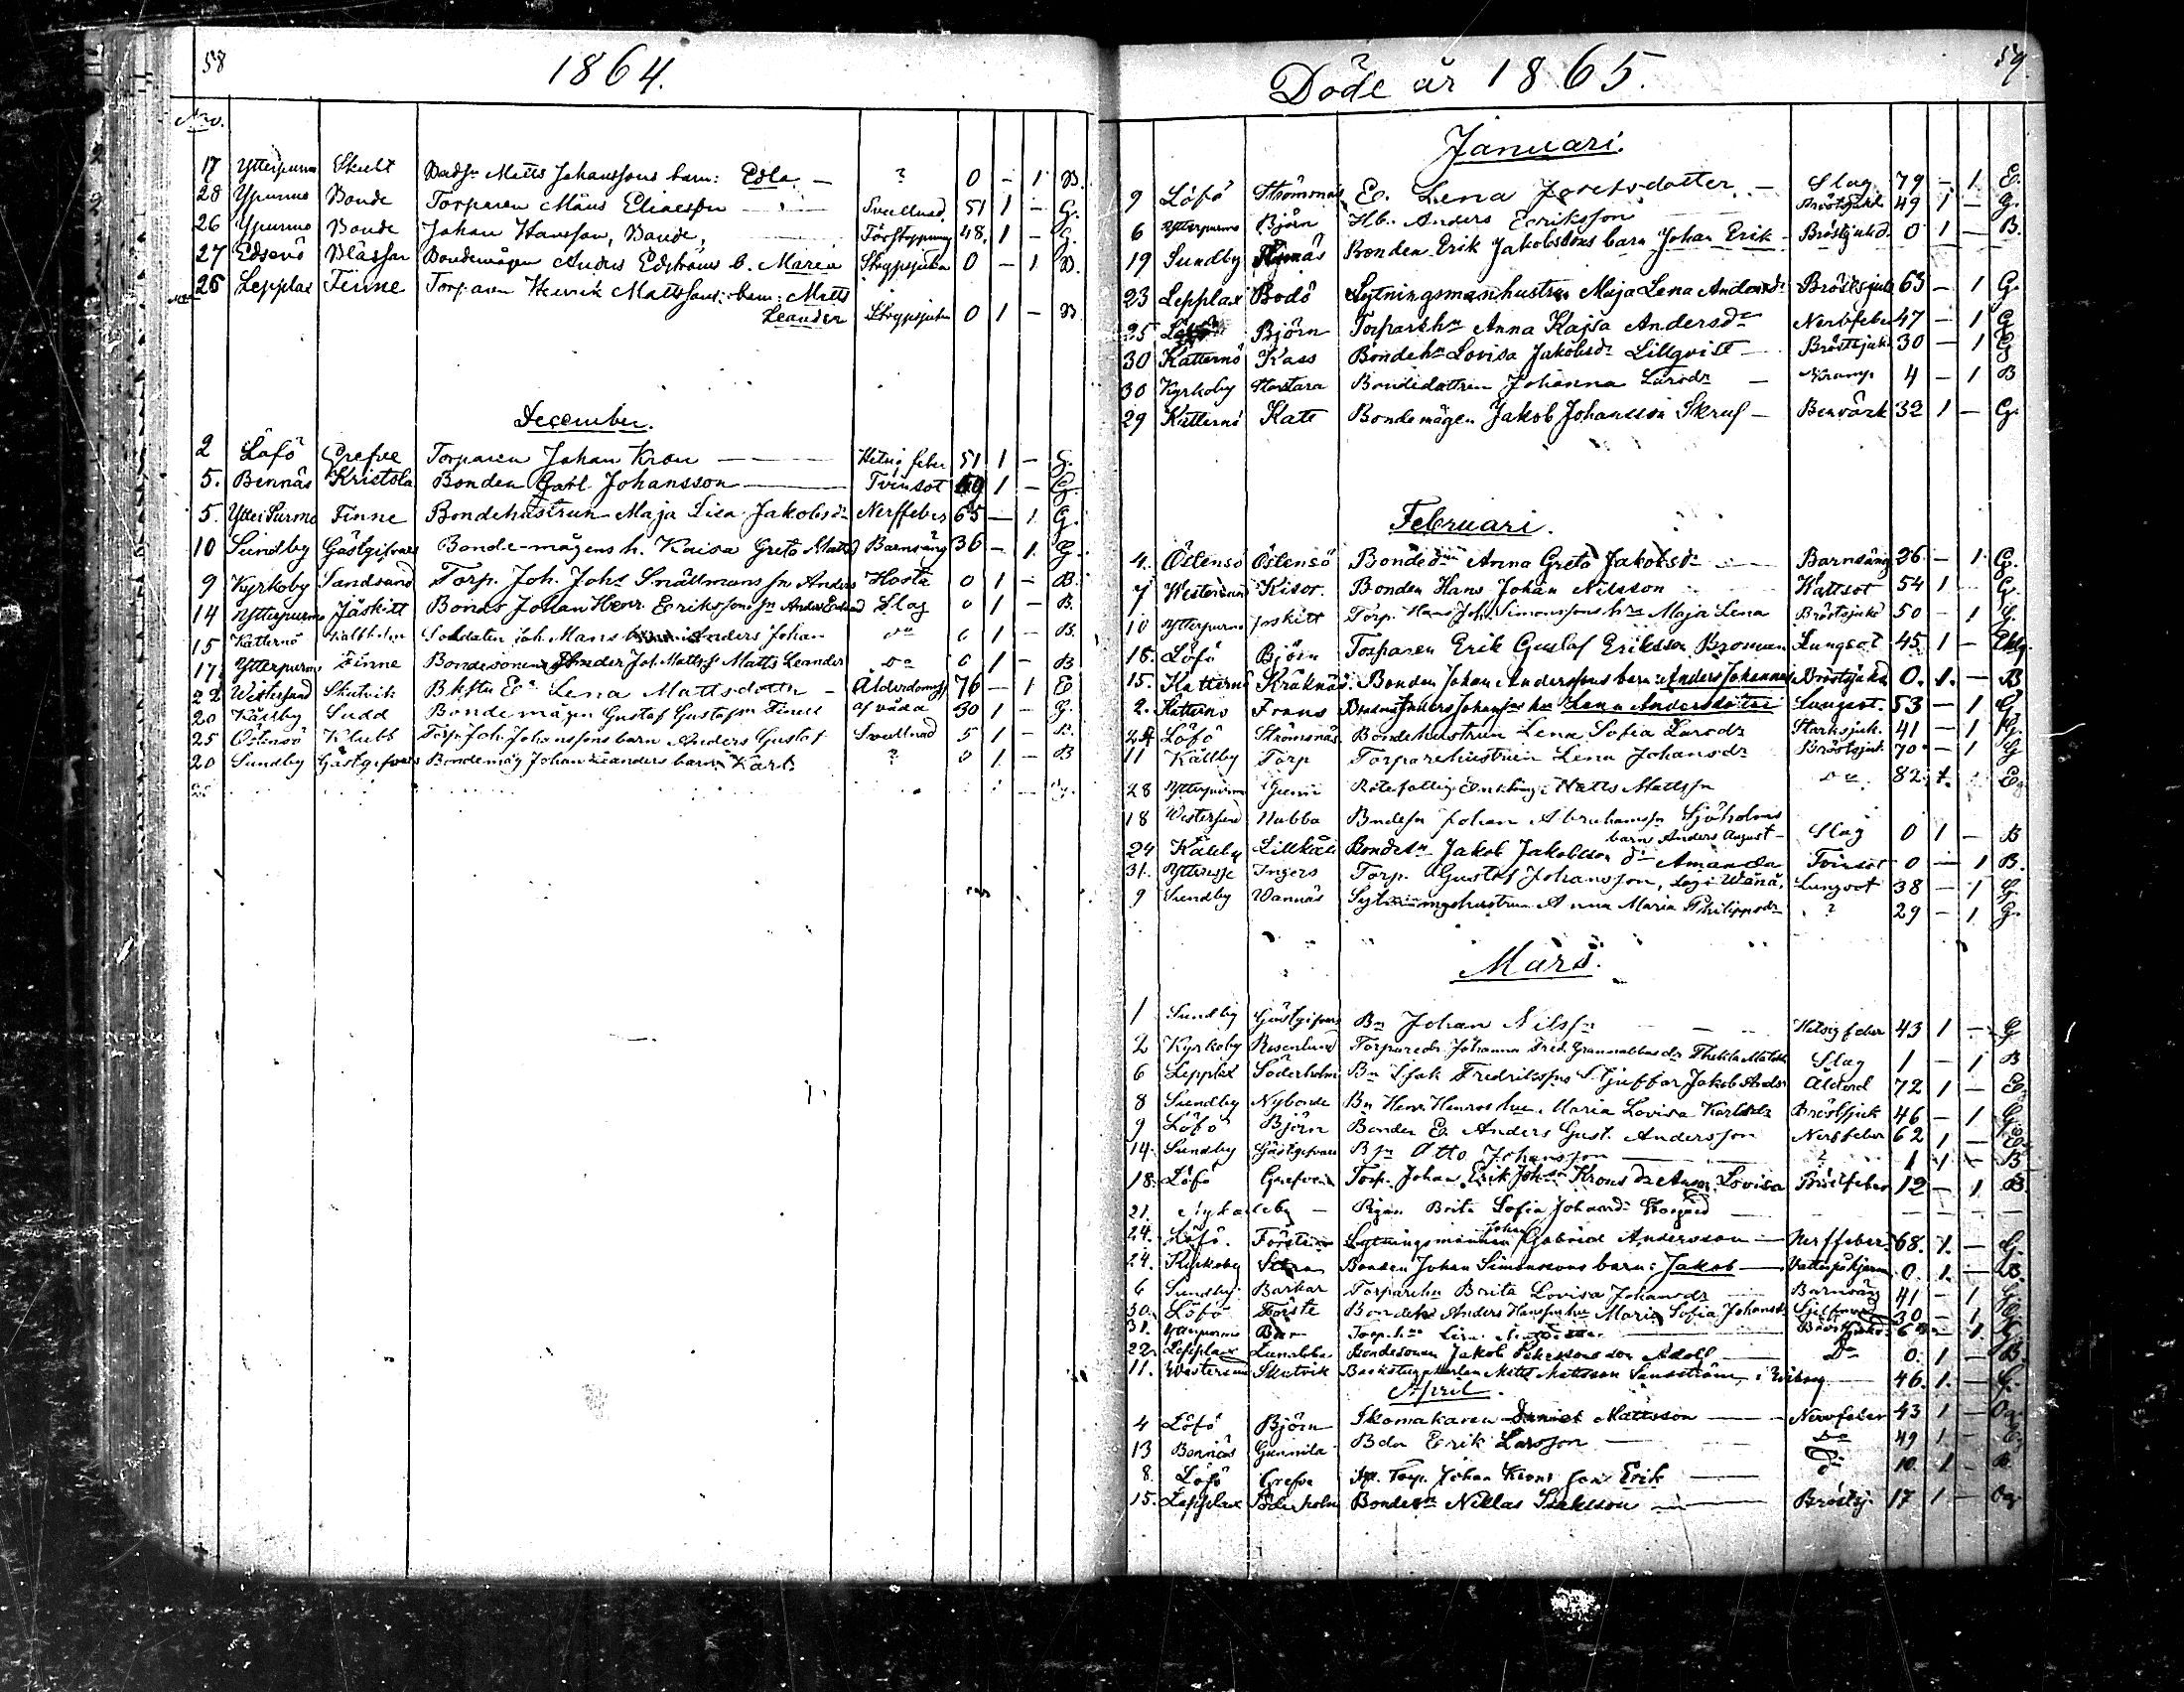 58
1864.
Nov.
17 Ytterpurmo Skult Matts Johanssons barn: Edla. — ? 0 – 1 B.
28 Ypurmo Bonde Torparen Måns Eliaesson — Svullnad. 51 1 – G.
26 Ypurmo Bonde Johan Hansson, Bonde, — Förstoppning 48. 1 – G.
27 Edsevö Blässar Bondemågen Anders Edströms b. Maria Strypsjuka 0 – 1 B.
26 Lepplax Finne Torparen Henrik Mattssons barn: Matts
Leander Strypsjuka 0 1 – B
December.
2 Löfö Grefve Torparen Johan Kron — Hetsig feber 51 1 – G.
5. Bennäs Kristola Bonden Johansson — Tvinsot 1 – G.
5. Ytter Purmo Finne Bondehustrun Maja Lisa Jakobsdr Nerffeber 65 – 1 G.
10 Sundby Gästgifvars Bonde-mågens h. Kaisa Greta Barnsäng 36 – 1. G.
9 Kyrkoby Sandsund Torp. Joh. Johs Snällmans sn Anders Hosta 0 1 – B.
14 Ytterpurmo Jäskitt Bondes Johan Henr. Erikssons sn Anders Slag 0 1 – B.
15 Katternö Soldaten Joh. Mans Anders Johan do 0 1 – B.
17. Ytterpurmo Finne Bondesonen Joh. Mattss. Matts Leander do 0 1 – B
22 Westersund Skutvik Bkstu Ea Lena Mattsdotter – Ålderdomssv 76 – 1 E
20 Källby Sudd Bondemågen Gustaf Gustafsn Finell af våda 30 1 – G.
25 Östensö Klubb Torp. Joh. Johanssons barn Anders Gustaf Svullnad 5 1 – B.
20 Sundby Gästgifvars Bondemåg Johan Leanders barn Karl ? 0 1 – B
59.
Döde år 1865.
Januari.
9 Löfö Strömsnäs E. Lena Josefsdotter. – Slag 79 – 1. E.
6 Ytterpurmo Björn Hb. Anders Eriksson Bröstsjukd. 49 1 – G.
19 Sundby Bonden Erik Jakobssons barn Johan Erik – Bröstsjukd. 0 1 – B.
23 Lepplax Bodö Sytningsmanhustrun Maja Lena Andersdr Bröstsjuk 63 – 1 G.
25 Björn Torparehn Anna Kajsa Andersdr Nervfeber 47 – 1 G
30 Katternö Kass Bondehn Lovisa Jakobsdr Lillqvist — Bröstsjuk 30 – 1 G
30 Kyrkoby Storstara Bondedottren Johanna Larsdr – Kramp 4 – 1 B
29 Katternö Kate Bondemågen Jakob Johansson Skruf – Benvärk 32 1 – G.
Februari.
4. Östensö Östensö Bondedr Anna Greta Jakobsdr — Barnsäng 36 – 1. G.
7 Westersund Kisor. Bonden Hans Johan Nilsson Kallsot 54 1 – G.
10 Ytterpurmo Jäskitt Torp. Hans Joh. Simonssons hru Maja Lena Bröstsjukd 50 – 1 G.
16. Löfö Björn Torparen Erik Gustaf Eriksson Broman Lungsot 45. 1 –
15. Katternö Kråknäs. Bonden Johan Anderssons barn Anders Johannes Bröstsjukd 0. 1. – B
2. Katternö Frans Bonden Anders Johanssons hu Lena Andersdotter Lungsot. 53 – 1 G
24 Löfö Strömsnäs Bondehustrun Lena Sofia Larsdr Starksjuk. 41 – 1 G.
11 Källby Torp Torparehustrun Lena Johansdr Bröstsjuk. 70 – 1 G
28 Ytterpurmo Gunni Rotefattig Enkling Matts Mattsson do 82. 1. E
18 Westersund Nabba Bndesn Johan Abrahamssn Sjöholms
barn Anders August – Slag 0 1 – B
24 Källby Lillkäll Bondesn Jakob Jakobsson dr Amanda Tvinsot 0 – 1 B.
31. Ytteresse Ingers Torp. Gustaf Johansson, Lungsot 38 – 1 G.
9 Sundby Wannäs Sytningshustrun Anna Maria Philippsdr ? 29 – 1 G.
Mars.
1 Sundby Gästgifvars Bn Johan Nilssn — Hetsig feber 43 1 – G
2 Kyrkoby Rosenlund Torparedr Johanna Fred. Grannabbas dr Thekla Matilda Slag 1 – 1 B
6 Lepplax Söderholm Bn Isak Fredrikssons Jakob Anders Ålderd 72 1 – E
8 Sundby Nybonde Bn Henr. Henrss hru Maria Lovisa Karlsdr Bröstsjuk 46 – 1 G
9 Löfö Björn Bonden E. Anders Gust. Andersson Nerffeber 62 1 – E
14. Sundby Gästgifvars Bsn Otto Johansson — ? 1 1 – B
18. Löfö Grefve Torp. Johan Erik Johsn Krons dr Anna Lovisa Bröstfeber 12 – 1 B
21. Nykarleby – Pigan Brita Sofia Johansdr — – – –
24. Löfö. Förste Sytningsmannen Johan Gabriel Andersson — Nerffeber 68. 1. – G.
24. Kyrkoby Bonden Johan Simonssons barn: Jakob — Vattupåhjernan 0. 1. – B.
6 Sundby Barkar Torparehu Brita Lovisa Johansdr Barnsäng 41 – 1 G
30. Löfö Förste Bonden Anders Hanssons hu Maria Sofia Johansdr 30 – 1
31. Ytterpurmo Torp.hn Bröstsjukd – 1
22. Lepplax Bondesonen Jakob son Adolf — Do 0. 1 – B
11. Westersund Skutvik Backstugukarlen Matts Mattsson Sandström, 46. 1. – G.
April.
4 Löfö Björn Skomakaren Daniel Mattsson — Nervfeber 43 1 –
13 Bennäs Gunnila Bdn Erik Larsson — Do 49 1. –
8. Löfö Grefve Torp. Johan Krons son Erik — Do 10. 1 – B.
15. Lepplax Söderholm Bondesn Niklas Isaksson — Bröstsj. 17 1 – Og